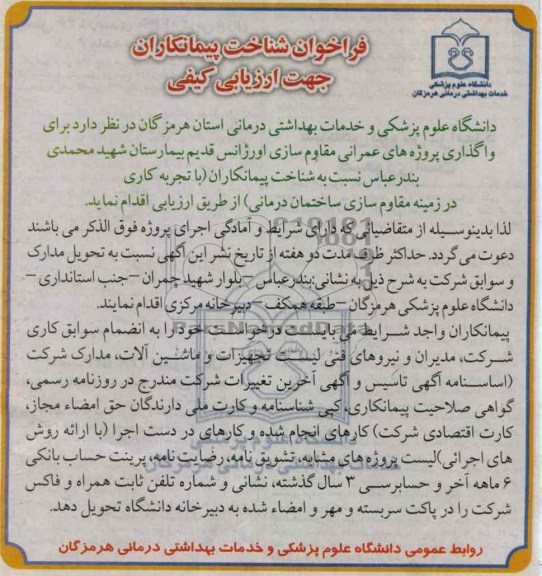 فراخوان شناخت پیمانکاران
جهت ارزیابی کیفی
دانشگاه علوم پزشکی
خدمات بهداشتی درمانی هرمزگان
دانشگاه علوم پزشکی و خدمات بهداشتی درمانی استان هرمزگان در نظر دارد برای
واگذاری پروژه های عمرانی مقاوم سازی اورژانس قدیم بیمارستان شهید محمدی
بندرعباس نسبت به شناخت پیمانکاران (با تجربه کاری
در زمینه مقاوم سازی ساختمان درمانی) از طریق ارزیابی اقدام نماید.
لذا بدینوسیله از متقاضیانی که دارای شرایط و آمادگی اجرای پروژه فوق الذکر می باشند
دعوت می گردد. حداکثر ظرف مدت دو هفته از تاریخ نشر این آگهی نسبت به تحویل مدارک
و سوابق شرکت به شرح ذیل به نشانی: بندرعباس – بلوار شهید چمران – جنب استانداری –
دانشگاه علوم پزشکی هرمزگان – طبقه همکف – دبیرخانه مرکزی اقدام نمایند.
پیمانکاران واجد شرایط می بایست درخواست خود را به انضمام سوابق کاری
شرکت، مدیران و نیروهای فنی لیست تجهیزات و ماشین آلات، مدارک شرکت
(اساسنامه آگهی تاسیس و آگهی آخرین تغییرات شرکت مندرج در روزنامه رسمی،
گواهی صلاحیت پیمانکاری، کپی شناسنامه و کارت ملی دارندگان حق امضاء مجاز،
کارت اقتصادی شرکت) کارهای انجام شده و کارهای در دست اجرا (با ارائه روش
های اجرائی) لیست پروژه های مشابه، تشویق نامه، رضایت نامه، پرینت حساب بانکی
۶ ماهه آخر و حسابرسی ۳ سال گذشته، نشانی و شماره تلفن ثابت همراه و فاکس
شرکت را در پاکت سربسته و مهر و امضاء شده به دبیرخانه دانشگاه تحویل دهد.
روابط عمومی دانشگاه علوم پزشکی و خدمات بهداشتی درمانی هرمزگان